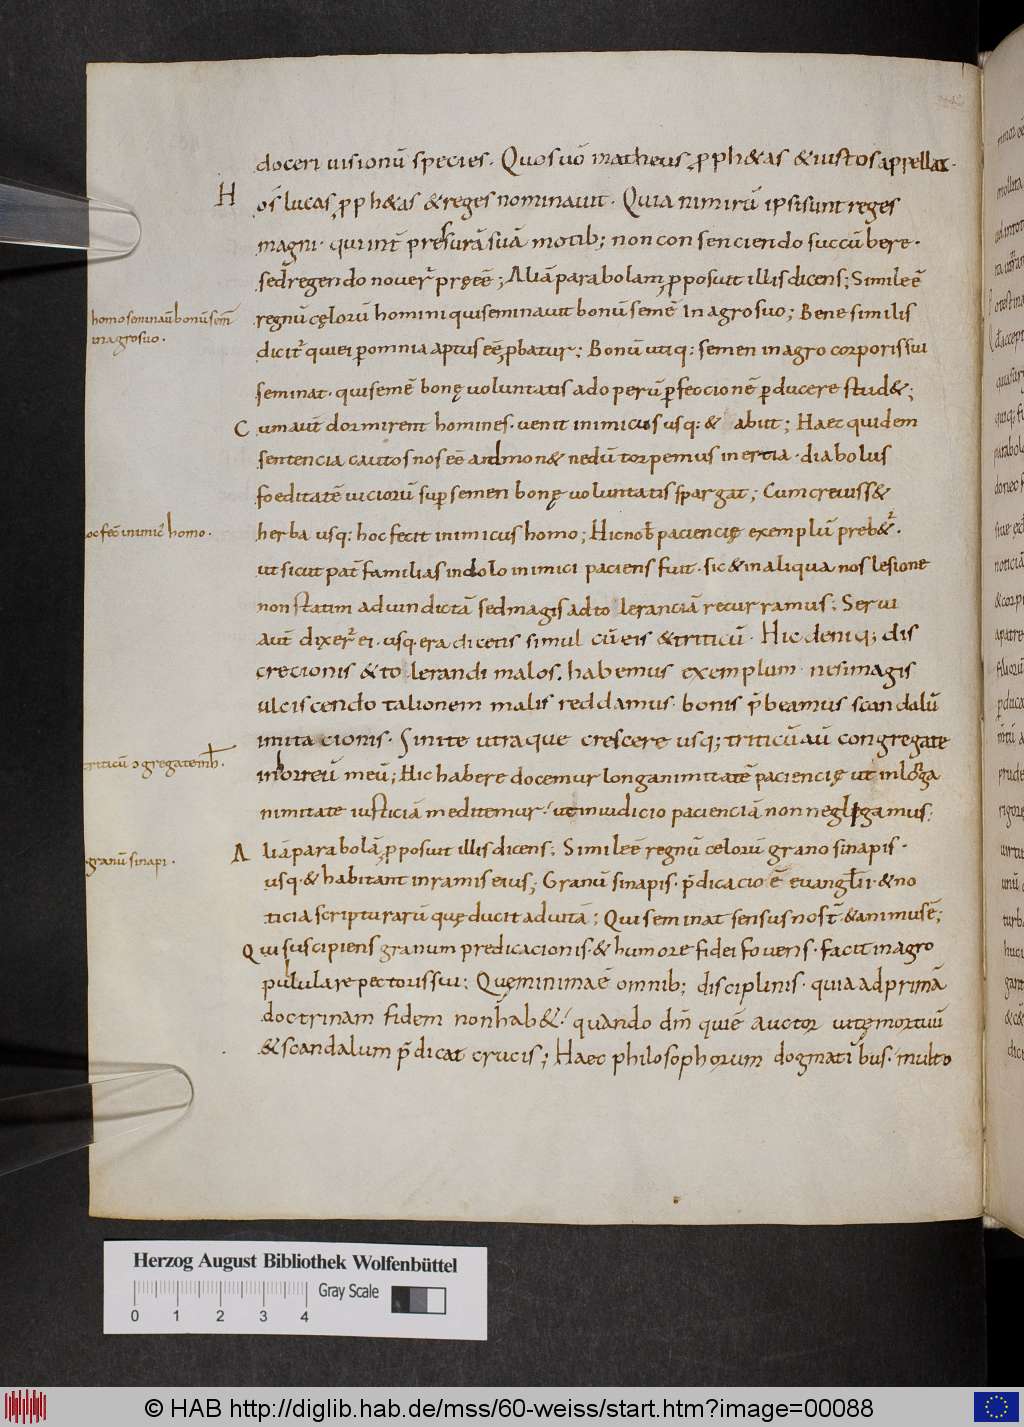 doceri uisionū species. Quos uō matheus ꝓph&as & iustos appellat.
H
os̄ lucas ꝓph&as & reges nominauit. Quia nimirū ipsi sunt reges
magni. qui int̄ p̄ssurā suā motib; non consenciendo succūbere.
sed regendo nouer̄ pręeē; Aliā parabolam ꝓposuit illis dicens; Simile ē
homo seminaū bonū sem̄
in agro suo.
regnū cęlorū homini qui seminauit bonū semē in agro suo; Bene similis
dicit᷑ qui ei ꝑ omnia aptus eē ꝓbatur; Bonū utiq: semen in agro corporis sui
seminat. qui semē bonę uoluntatis ad operū ꝑfeccionē ꝑducere stud&;
C um aut̄ dormirent homines. uenit inimicus usq: & abiit; Haec quidem
sentencia cautos nos eē admon& ne dū torpemus inertia. diabolus
foeditatē uiciorū suꝑ semen bonę uoluntatis spargat; Cum creuiss&
oc fec̄ inimic᷑ homo.
herba usq: hoc fecit inimicus homo; Hic nob̄ paciencię exemplū preb&᷑.
ut sicut pat̄ familias in dolo inimici paciens fuit. sic & in aliqua nos lesione
non statim ad uindictā sed magis ad toleranciā recurramus; Serui
aut̄ dixer̄ ei. usq. era dicetis simul cū eis & triticū. Hic deniq; dis
crecionis & tolerandi malos. habemus exemplum. ne si magis
ulciscendo talionem malis reddamus. bonis p̄beamus scandalū
imitacionis. Sinite utraque crescere usq; triticū aū congregate
triticū ɔgregate in h
in horreū meū; Hic habere docemur longanimitatē paciencię ut in longa
nimitate iusticiā meditemur. ut in iudicio pacienciā non neglegamus;
granū sinapi.
A liā parabolā ꝓposuit illis dicens; Simile ē regnū celorū grano sinapis.
usq. & habitant in ramis eius; Granū sinapis. p̄dicacio ē euangl̄ii. & no
ticia scripturarū quę ducit ad uitā; Qui seminat sensus nost̄ & animus ē;
Q ui suscipiens granum predicacionis. & humore fidei fouens. facit in agro
pullulare pectoris sui; Quę minima ē omnib; disciplinis. quia ad primā
doctrinam fidem non hab&. quando dm̄ qui ē auctor uitę mortuū
& scandalum p̄dicat crucis; Haec philosophorum dogmatibus. multo
Herzog August Bibliothek Wolfenbüttel
Gray Scale
0 1 2 3 4
© HAB http://diglib.hab.de/mss/60-weiss/start.htm?image=00088